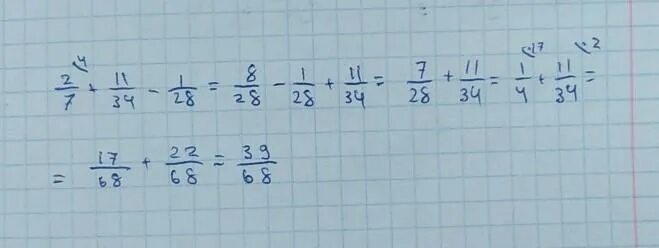 2/7 \4 + 11/34 - 1/28 = 8/28 - 1/28 + 11/34 = 7/28 + 11/34 = 1/4 \17 + 11/34 \2 =
= 17/68 + 22/68 = 39/68